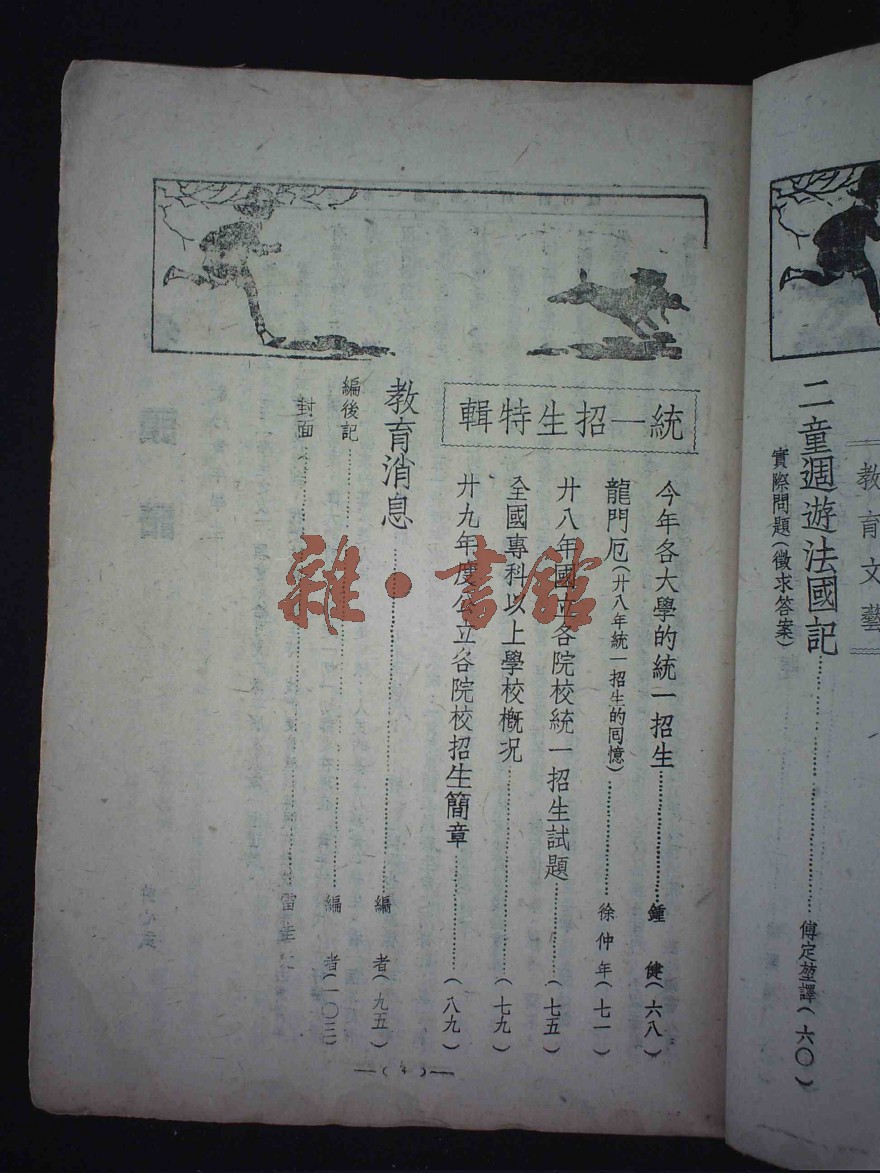 教育文藝
二童週遊法國記……傅定堃譯(六〇)
實際問題(徵求答案)
統一招生特輯
今年各大學的統一招生……鍾健(六八)
龍門厄(廿八年統一招生的囘憶)……徐仲年(七一)
廿八年國立各院校統一招生試題……(七五)
全國專科以上學校概况……(七九)
廿九年度公立各院校招生簡章……(八九)
教育消息……編者(九五)
編後記……編者(一〇三)
封面……雷圭
—(4)—
雜·書館